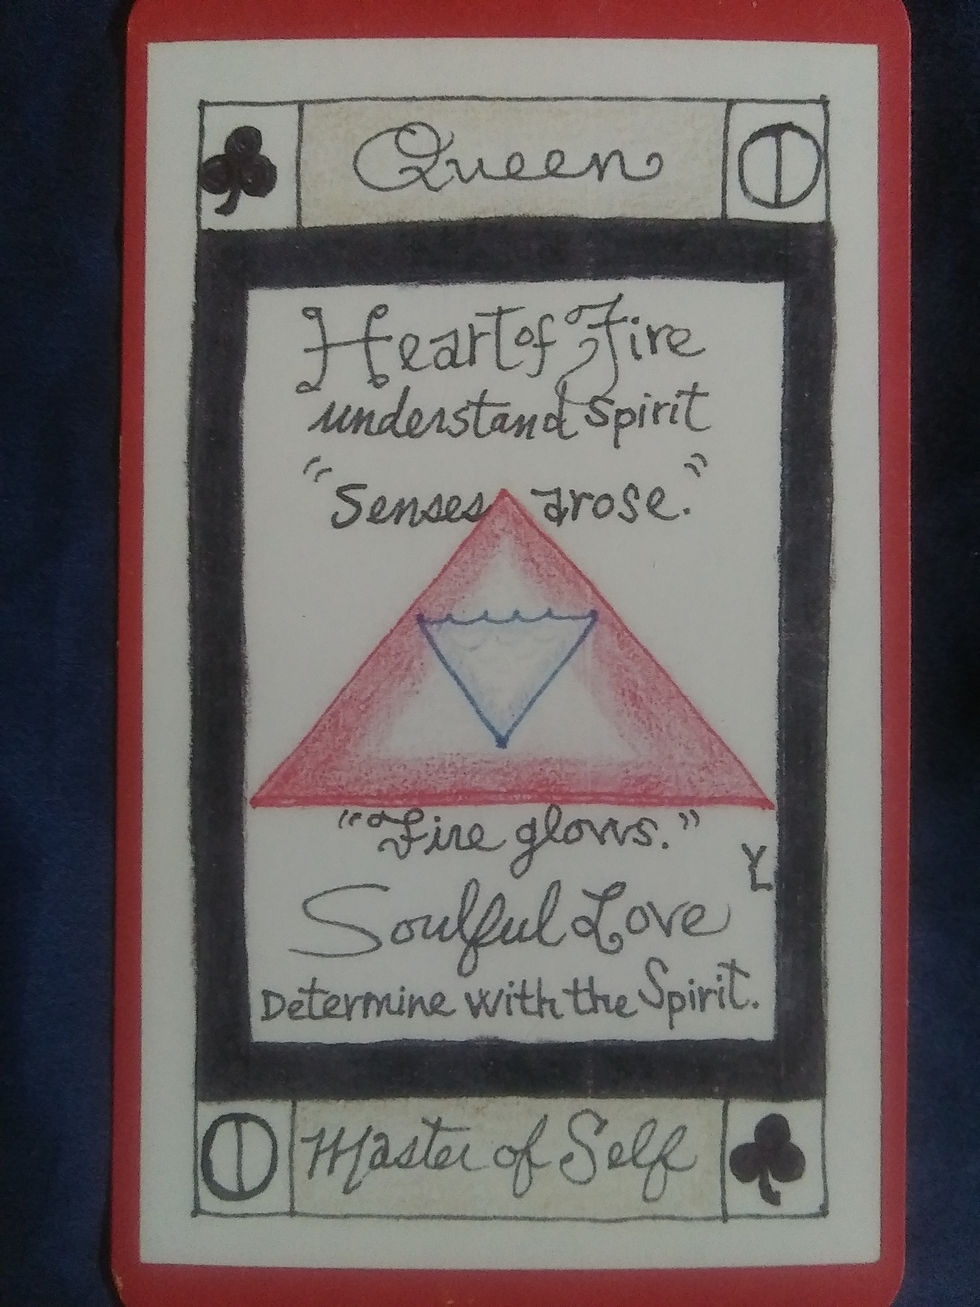 Queen
Heart of Fire
understand spirit
"Senses arose."
"Fire glows."
YL
Soulful Love
Determine with the Spirit.
Master of Self